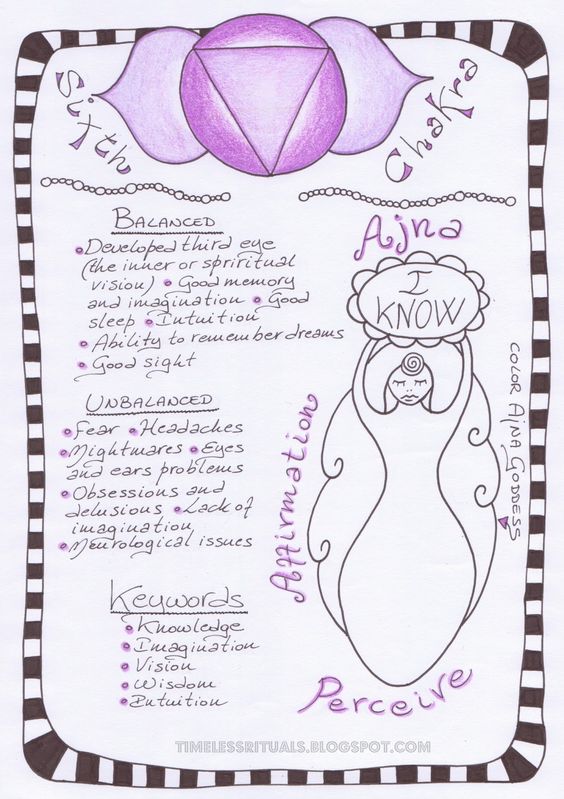 Sixth Chakra
Balanced
• Developed third eye
(the inner or spriritual
vision) • Good memory
and imagination • Good
sleep • Intuition
• Ability to remember dreams
• Good sight
Unbalanced
• Fear • Headaches
• Nightmares • Eyes
and ears problems
• Obsessions and
delusions • Lack of
imagination
• Neurological issues
Keywords
• Knowledge
• Imagination
• Vision
• Wisdom
• Intuition
Ajna
I
KNOW
Affirmation
COLOR AJNA GODDESS
Perceive
TIMELESSRITUALS.BLOGSPOT.COM